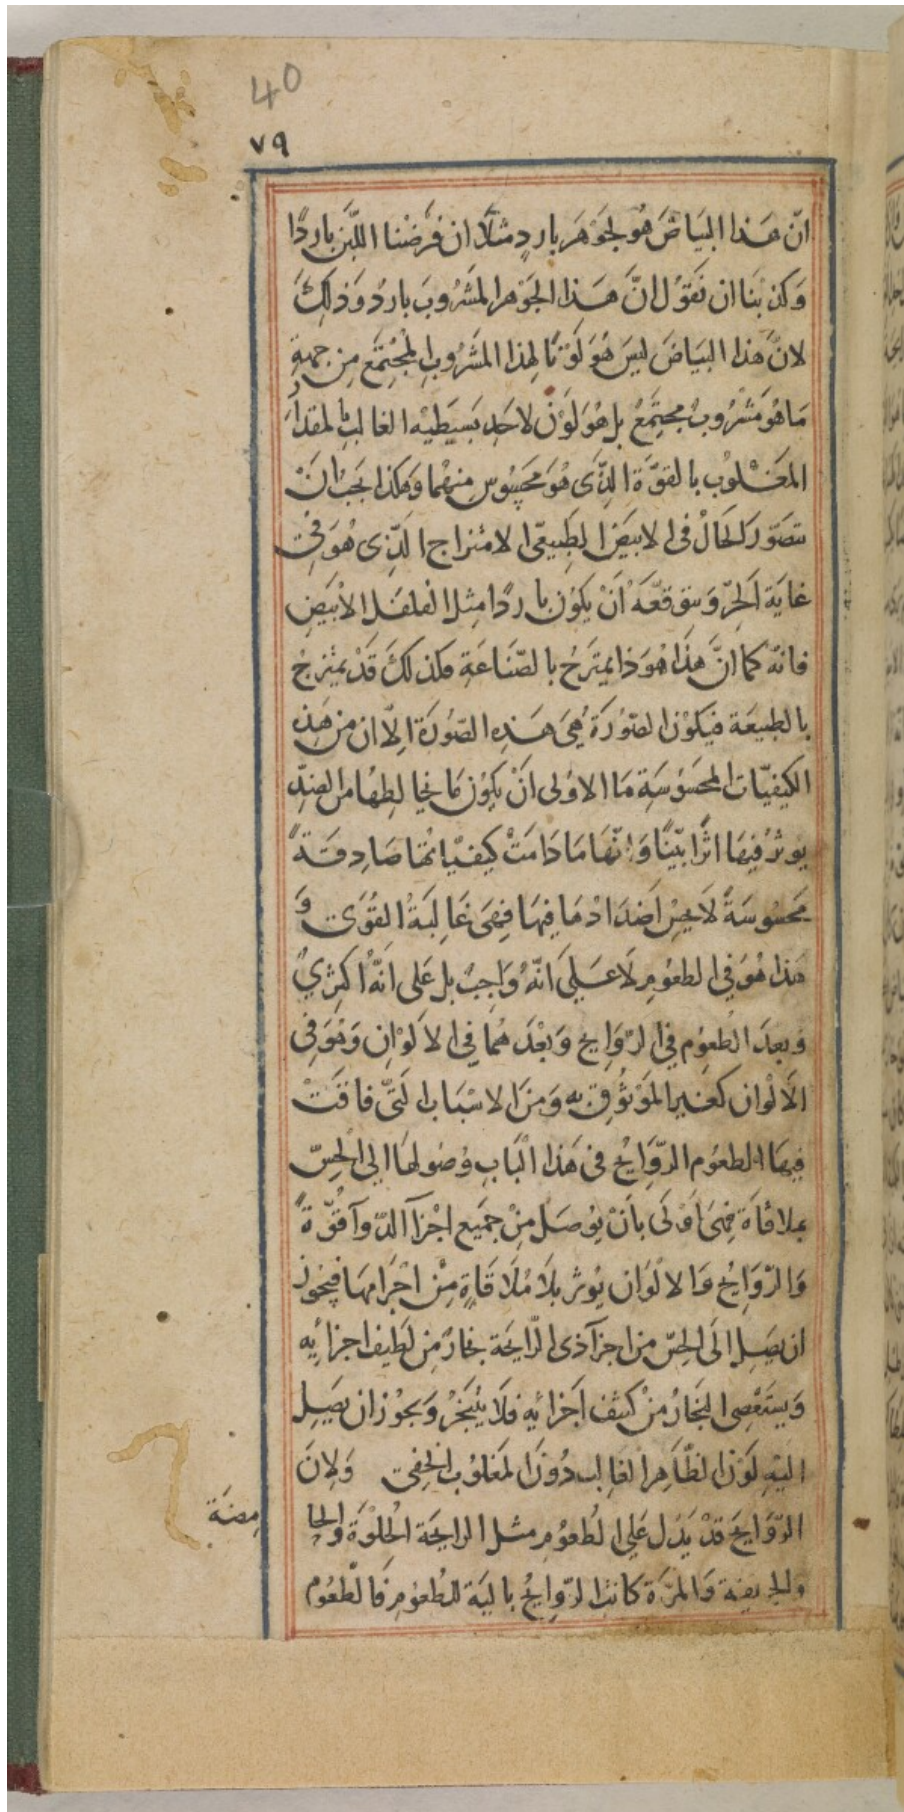 40
٧٩
انّ هَذا البَيَاضَ هُو لجَوْهَر بارِدٍ مثلًا ان فرَضْنا اللّبَن بارِدًا
وَكذبْنَا ان نَقوُل انَّ هَذا الجَوَهر المشَرُوبَ بارِدُ وَذلِكَ
لانَّ هذا البيَاضَ ليسَ هُوَ لَوْنًا لهذا المشَرُوبِ المجُتِمَع مِن جهةِ
مَا هُوَ مَشْرُوبٌ مجتِمَعُ بل هُوَ لَوْن لاحَدِ بَسيَطَيْه الغالبِ بالمقدارَ
المغَلوُب بالقوَّة الذِّى هُوَ مَحسُوس منِهُما وَهكذا يجَبُ انْ
تتصَوّر الحَالُ فى الابيَض الطبيعىّ الامتزاج الذِّى هُوَ فى
غايَة الحَرّ وَيتوقعّ انَْ يكوُن باردًا مِثل الفلفل الابْيَضِ
فانّه كما انَّ هذَا هُوَ ذا يمتزَجُ بالصّنَاعَةِ فكذلكَ قَدْ يمتزجُ
بالطبيعَة فيَكوُن الصّوُرَةُ هِىَ هَذِه الصّوُرَة الِاّ ان من هَذِه
الكيفيّات المحسَوُسَةِ مَا الاوْلى انَْ يكوُن مَا يخالِطهُا من الضدِّ
يوثرُ فيهَا اثرًا بيّنًا وَانّهَا مَا دَامَتْ كيفيّاتها صَادِقةً
محَسُوسَةً لَا يحسّ اضدَادَ مَا فيهَا فهِىَ غَالِبَةُ القُوَى وَ
هذا هُوَ فى الطعُوم لَا عَلى انّهُ وَاجِبٌ بل عَلى انَّهُ اكثرىٌ
وَبعدَ الطعُوم فى الرّوَايح وَبعْدَهُما فى الاَلْوان وَهُوَ فى
الاَلوْان كغير الموَثوُق به وَمنَ الاسبَاب التّى فاقَتْ
فيهَا الطعُوم الرّوَايحُ فى هَذا البَاب وُصُولهَا الى الحِسّ
بملاقاة فهِىَ اوْلى بانْ يوُصَل مِنْ جَميع اجْزَآ الدّوآ قُوّةً
وَالرّوَايحُ وَالالوَان يوُثر بلَا مُلَاقاةٍ مِنْ اجْرَامهَا فيجُوز
ان يصَل الَى الحِسّ من اجزآ ذى الرّايحَة بخارٌ مِن لطيف اجزائه
وَيستَعْصِى البخَارُ منْ كثيف اجَزائه فَلَا يتُبَخّرُ وَيجوُز ان يصَل
اليْهِ لوَْن الظّاهِر الغالِب دُونَ المغلُوب الخفى وَلانَ
الرّوَايحَ قدْ يَدُل عَلى الطعُوم مثل الرايحَة الحُلْوَة وَالحا
مِضَة
وَالحريفة وَالمُرّة كانت الرّوايحُ بالية للطعُوم فَالطعُوم